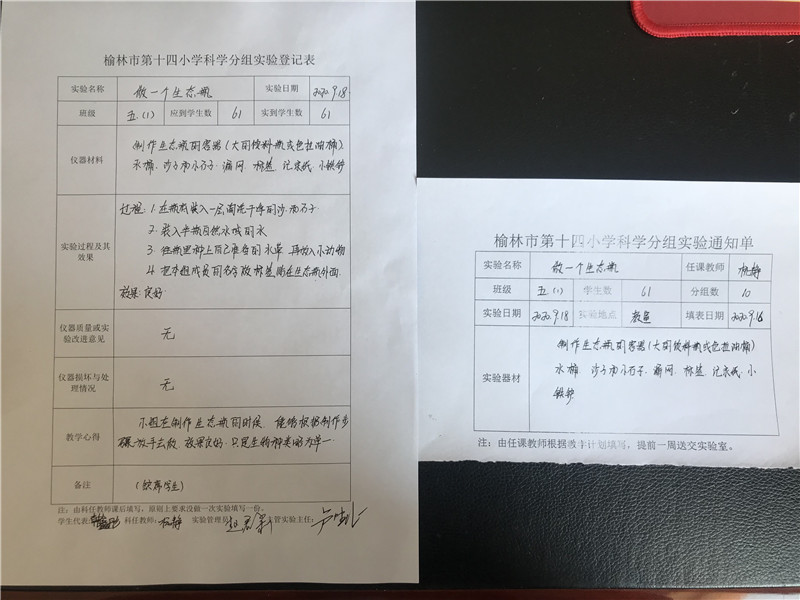 榆林市第十四小学科学分组实验登记表
实验名称 做一个生态瓶 实验日期 2020.9.18.
班级 五.(1) 应到学生数 61 实到学生数 61
仪器材料
制作生态瓶的容器(大的饮料瓶或色拉油桶)
水桶、沙子和小石子、漏网、标签、记录纸、小铁铲
实验过程及其效果
过程:1.在瓶底装入一层淘洗干净的沙和石子
2.装入半瓶自然水域的水
3.在瓶里种上自己准备的水草,再放入小动物
4.把本组成员的名字做标签贴在生态瓶外面
效果:良好
仪器质量或实验改进意见 无
仪器损坏与处理情况 无
教学心得
小组在制作生态瓶的时候,能够根据制作步
骤放手去做,效果良好,只是生物种类略为单一
备注 (缺席学生)
注:由科任教师课后填写,原则上要求没做一次实验填写一份。
学生代表: 科任教师: 杨静 实验管理员: 主管实验主任:
榆林市第十四小学科学分组实验通知单
实验名称 做一个生态瓶 任课教师 杨静
班级 五.(1) 学生数 61 分组数 10
实验日期 2020.9.18 实验地点 教室 填表日期 2020.9.16
实验器材
制作生态瓶的容器(大的饮料瓶或色拉油桶)
水桶 沙子和小石子、漏网、标签、记录纸、小
铁铲
注:由任课教师根据教学计划填写,提前一周送交实验室。